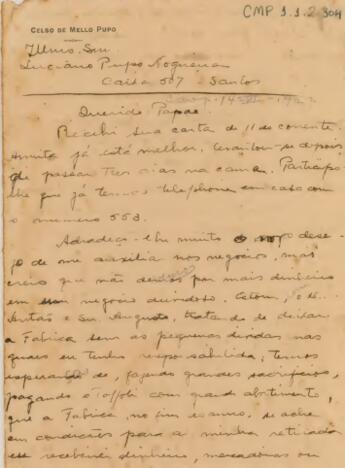 CMP 1.1.2.304
CELSO DE MELLO PUPO
Illmo. Snr.
Luciano Pupo Nogueira
Caixa 507 - Santos
Querido Papae.
Recebi sua carta de 11 do corrente.
já está melhor, levantou-se depois
de passar tres dias na cama. Participo
lhe que já temos telephone em casa com
o numero 553.
Agradeço-lhe muito o dese-
jo de me auxiliar nos negocios, mas
creio que não devemos por mais dinheiro
em um negocio duvidoso. Estou,
e Snr. Augusto, tratando de deixar
a Fabrica sem as pequenas dividas nas
quaes eu tenho responsabilidade; temos
esperança de, fazendo grandes sacrificios,
pagando com grande abatimento,
que a Fabrica, no fim do anno, se ache
em condições para a minha retirada
receberei dinheiro, mercadorias ou